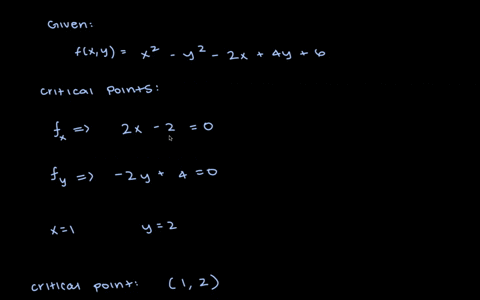 Given:
f(x,y) = x² - y² - 2x + 4y + 6
Critical points:
fₓ => 2x - 2 = 0
f_y => -2y + 4 = 0
x=1 y=2
Critical point: (1, 2)